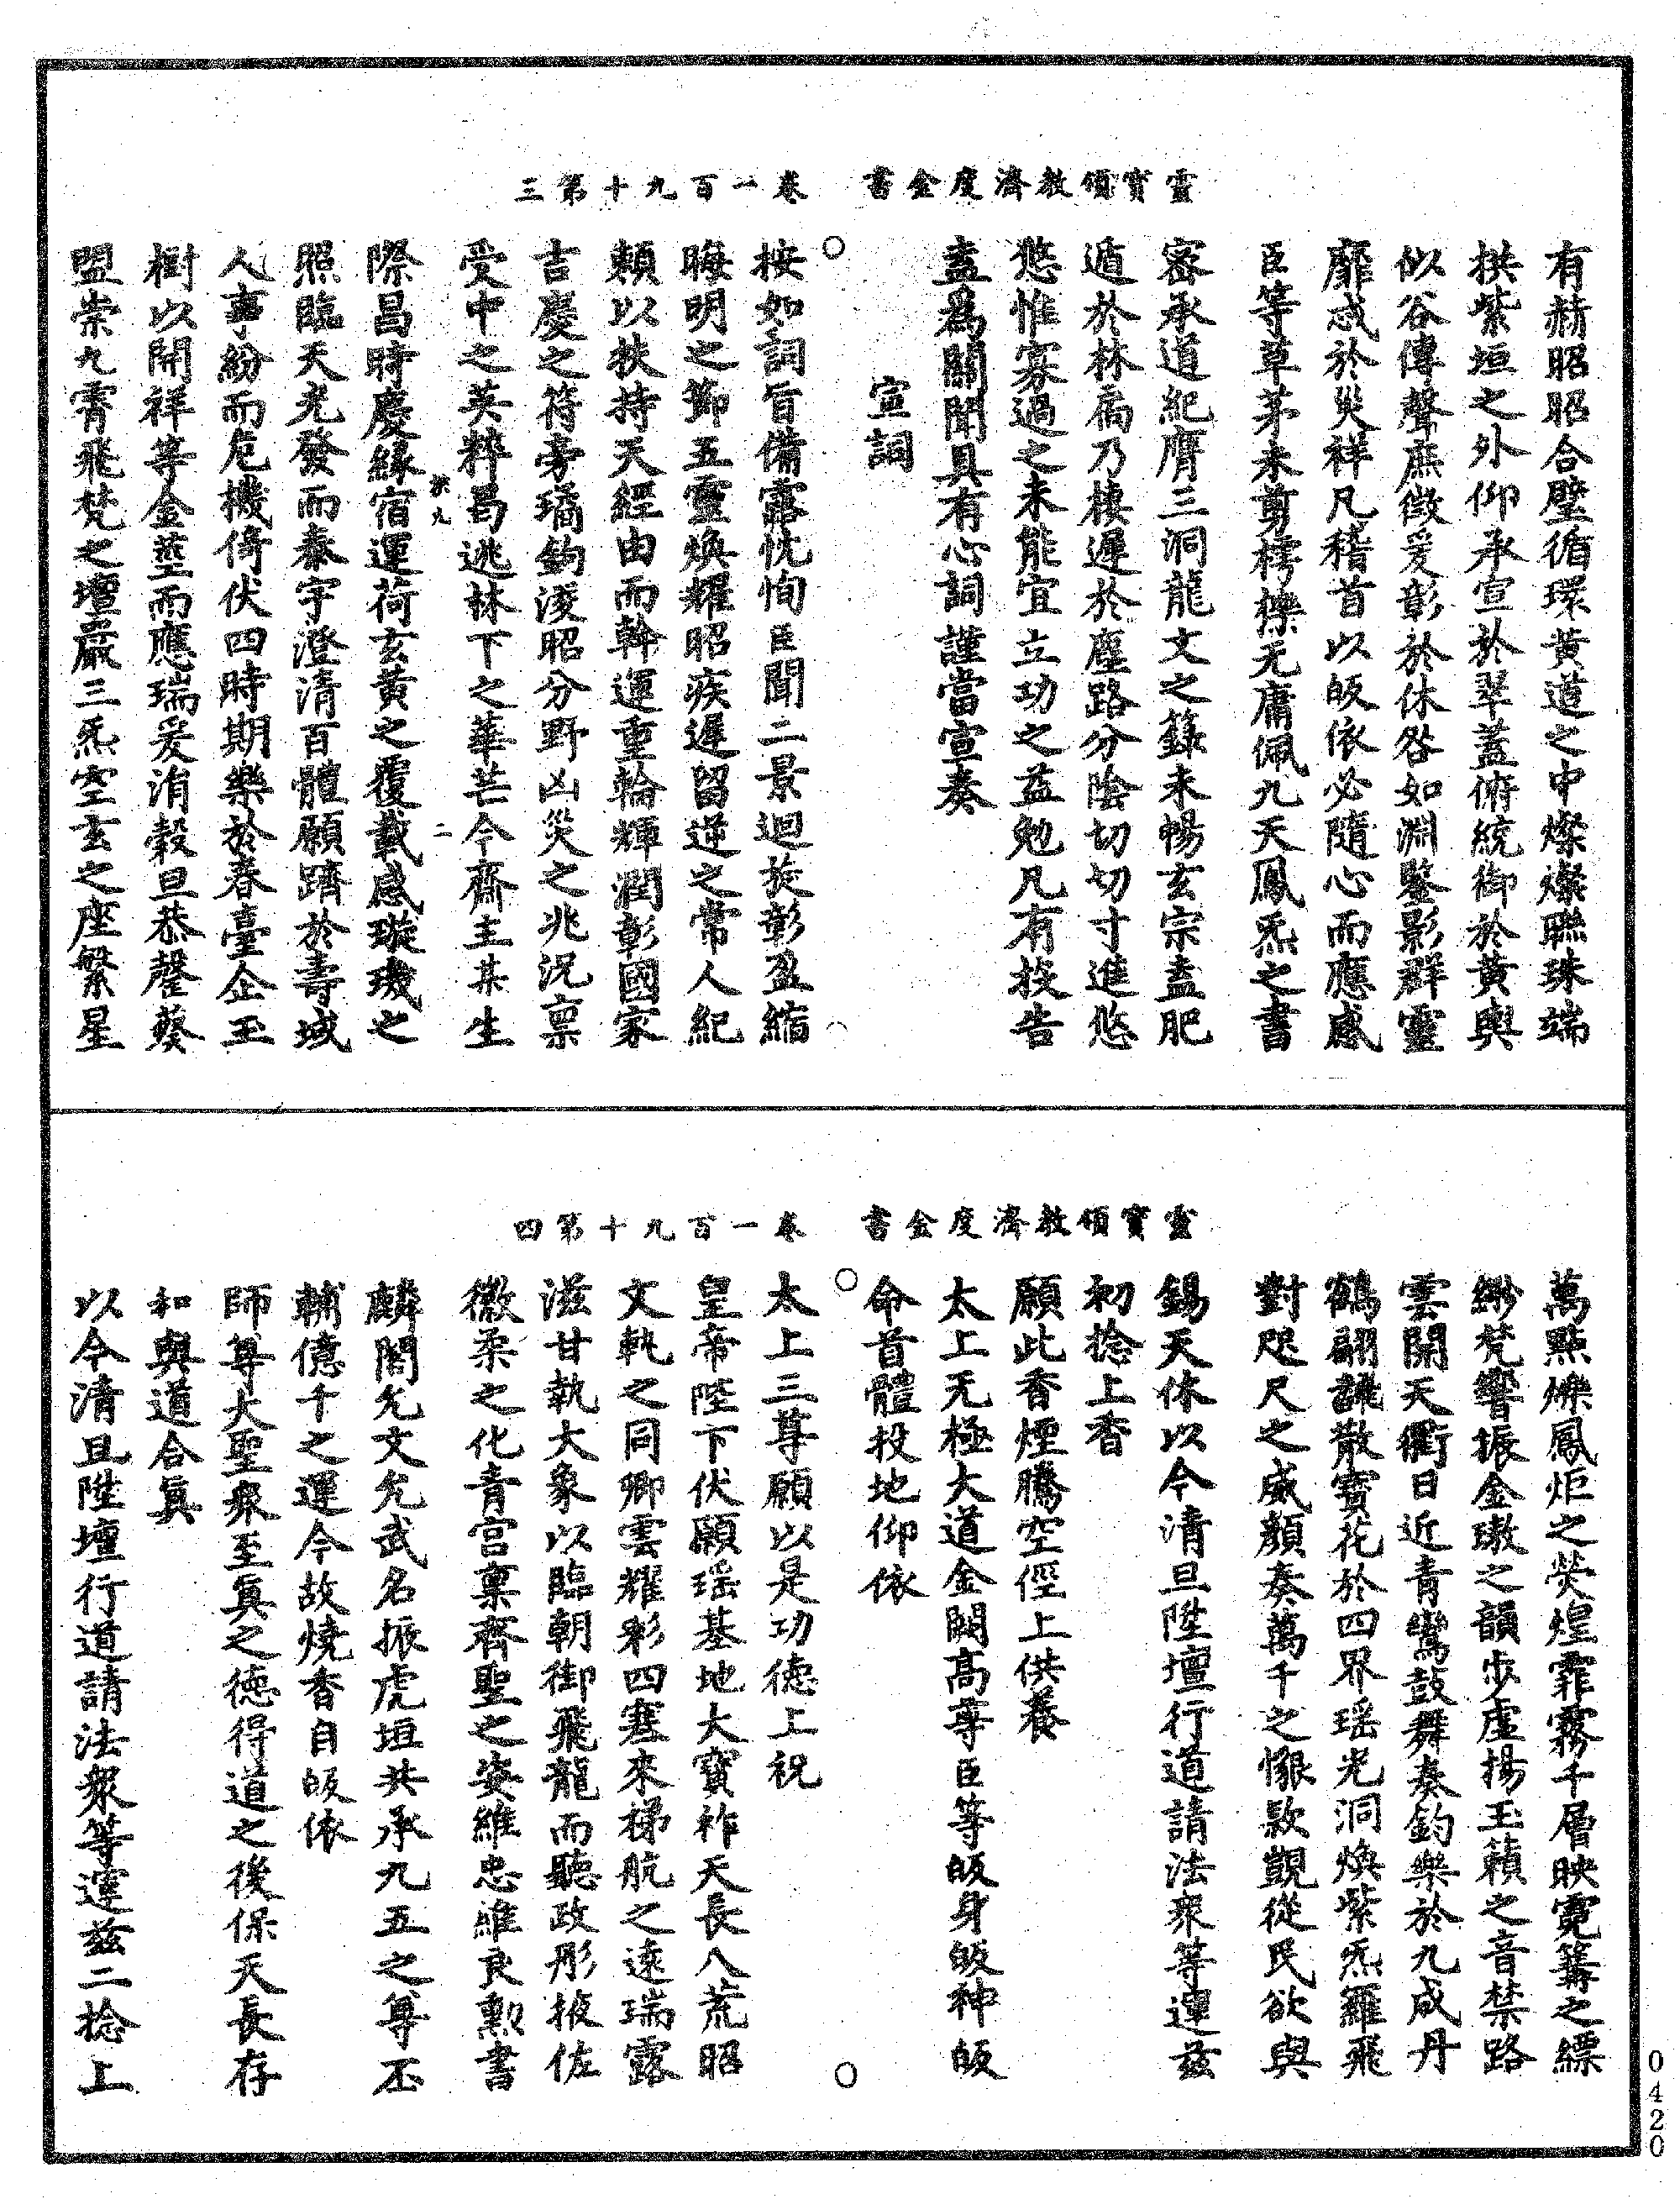 靈寶領教濟度金書　卷一百九十第三
有赫昭昭合璧循環黃道之中燦燦聯珠端
拱紫垣之外仰承宣於翠蓋俯統御於黃輿
似谷傳聲庶徵爰彰於休咎如淵鑒影群靈
靡忒於災祥凡稽首以皈依必隨心而應感
臣等草茅未剪樗櫟无庸佩九天鳳炁之書
密承道紀膺三洞龍文之籙未暢玄宗盍肥
遁於林扃乃棲遲於塵路分陰切切寸進悠
悠惟寡過之未能宜立功之益勉凡有投告
盍為關聞具有心詞謹當宣奏
宣詞
按如詞旨備露忱恂臣聞二景迴旋彰盈縮
晦明之節五靈煥耀昭疾遲留逆之常人紀
賴以扶持天經由而斡運重輪輝潤彰國家
吉慶之符旁璚鉤淩昭分野凶災之兆況稟
受中之英粹曷逃林下之華芒今齋主某生
際昌時慶緣宿運荷玄黃之覆載感璇璣之
扶九　二
照臨天光發而泰宇澄清百體願躋於壽域
人事紛而危機倚伏四時期樂於春臺企玉
樹以開祥等金莖而應瑞爰涓穀旦恭罄葵
盟崇九霄飛梵之壇嚴三炁空玄之座繁星
靈寶領教濟度金書　卷一百九十第四
萬點爍鳳炬之熒煌霏霧千層映霓篝之縹
緲梵響振金璈之韻步虛揚玉籟之音禁路
雲開天衢日近青鸞鼓舞奏鈞樂於九成丹
鶴翩躚散寶花於四界瑤光洞煥紫炁羅飛
對咫尺之威顏奏萬千之懇款覬從民欲與
錫天休以今清旦陞壇行道請法衆等運茲
初捻上香
願此香煙騰空徑上供養
太上无極大道金闕高尊臣等皈身皈神皈
命首體投地仰依
太上三尊願以是功德上祝
皇帝陛下伏願瑤基地大寶祚天長八荒昭
文軌之同卿雲耀彩四塞來梯航之遠瑞露
滋甘執大象以臨朝御飛龍而聽政彤掖佐
徽柔之化青宮稟齊聖之姿維忠維良勳書
麟閣允文允武名振虎垣共承九五之尊丕
輔億千之運今故燒香自皈依
師尊大聖衆至真之德得道之後保天長存
和與道合真
以今清旦陞壇行道請法衆等運茲二捻上
0420